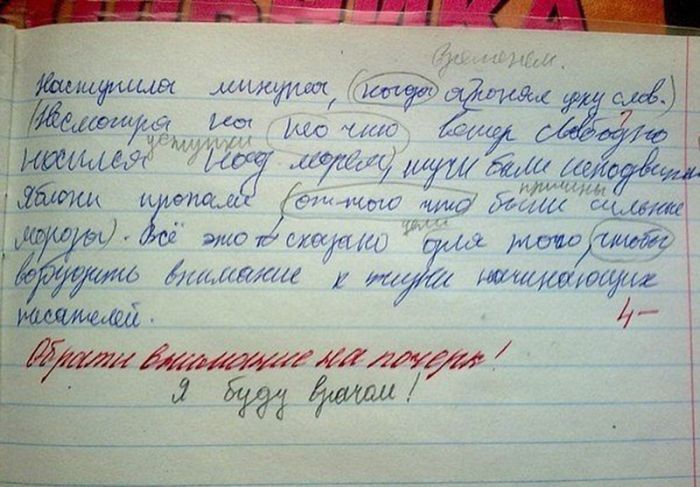 временем.
Наступила минута, (когда я понял цену слов.)
(Несмотря на то что ветер свободно
уступки
носился над морем), тучи были неподвижны
причины
Яблони пропали (оттого что были сильные
цели
морозы). Всё это сказано для того, чтобы
возбудить внимание к жизни начинающих
писателей. 4-
Обрати внимание на почерк!
Я буду врачом!